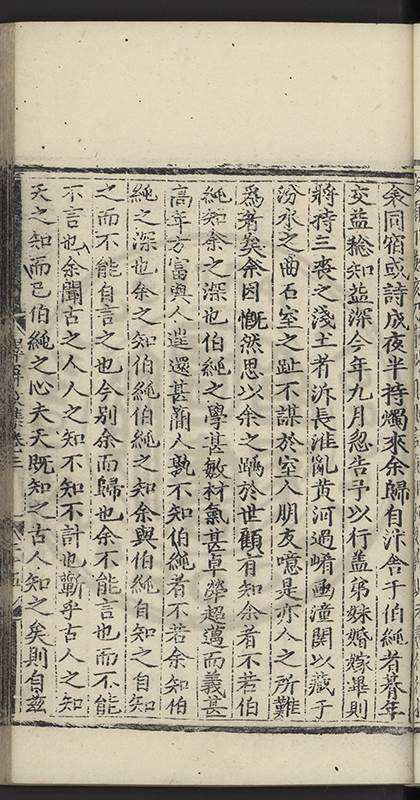 余同宿或詩成夜半持燭來余歸自汴舍于伯繩者暮年
交益稔知益深今年九月忽告予以行蓋弟妹婚嫁畢則
將持三喪之淺土者泝長淮亂黃河過崤函潼関以藏于
汾水之曲石室之趾不謀於室人朋友噫是亦人之所難
爲者矣余因慨然思以余之踽於世顧有知余者不若伯
繩知余之深也伯繩之學甚敏材氣甚卓犖超邁而義甚
高年方富與人逰還甚蕳人孰不知伯繩者不若余知伯
繩之深也余之知伯繩伯繩之知余與伯繩自知之自知
之而不能自言之也今別余而歸也余不能言也而不能
不言也余聞古之人人之知不知不計也蘄乎古人之知
天之知而已伯繩之心夫天既知之古人知之矣則自兹
集卷三